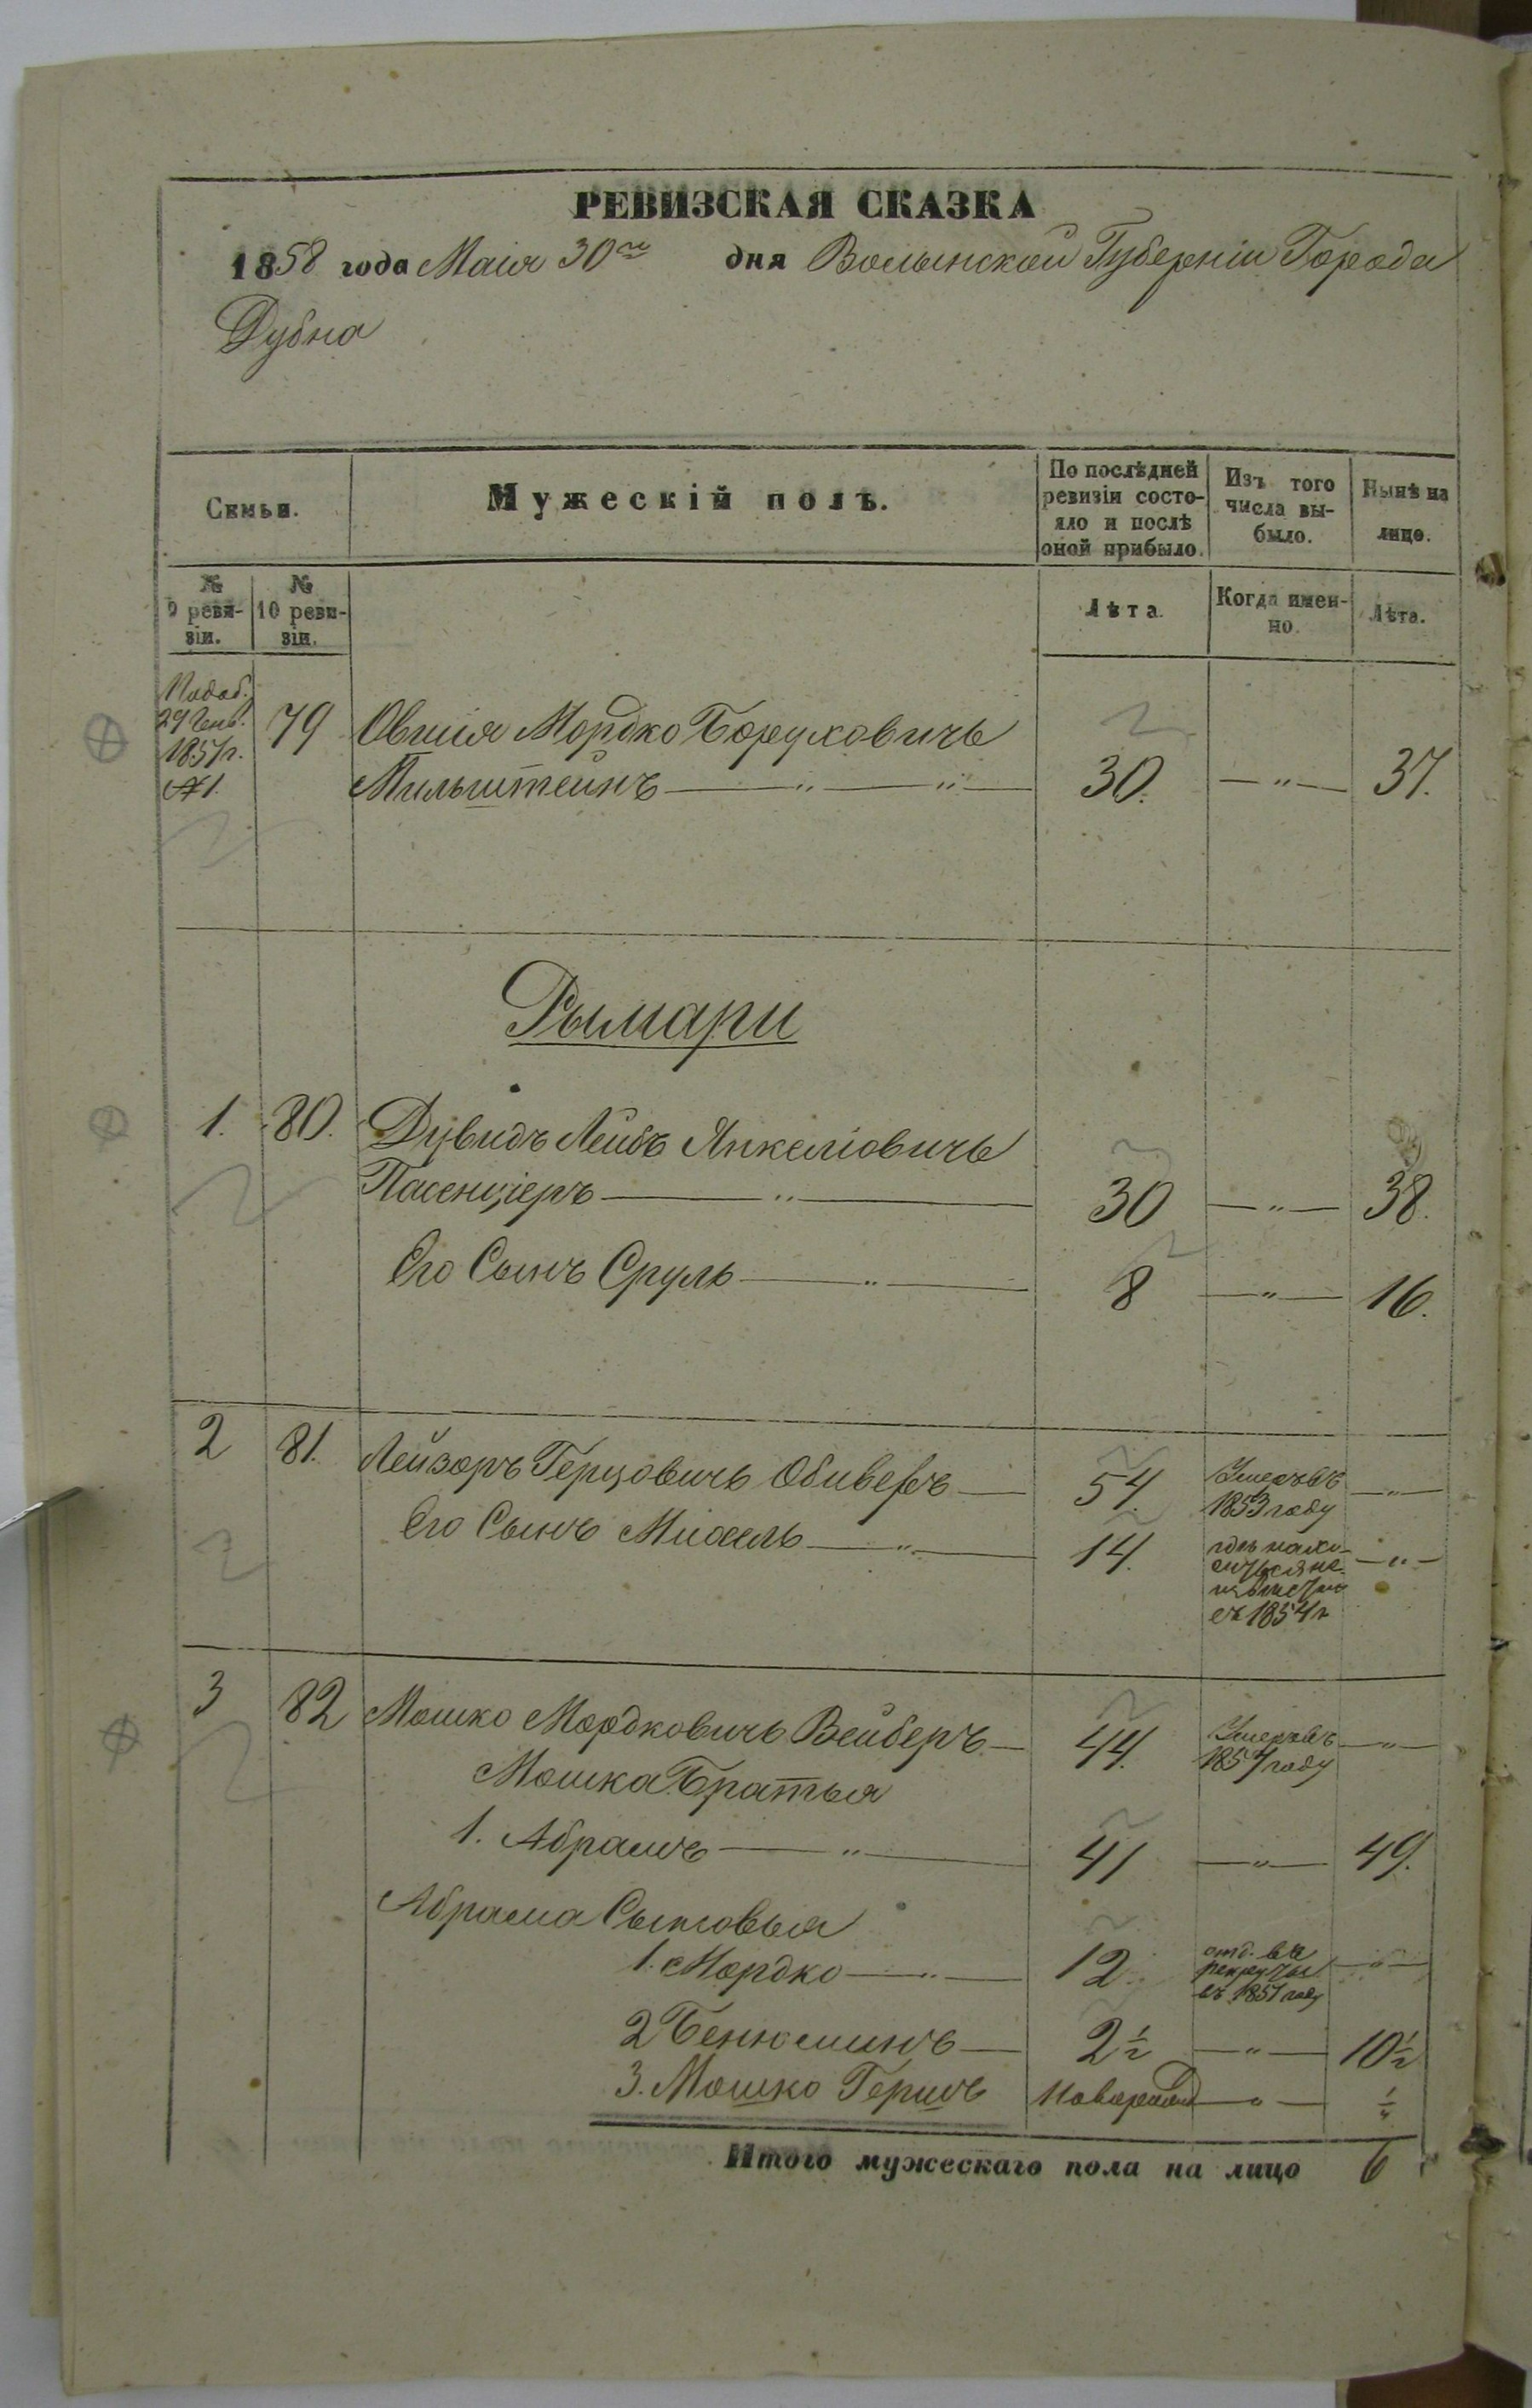 РЕВИЗСКАЯ СКАЗКА
1858 года Маія 30го дня Волынской Губерніи Города
Дубна
Семьи.
Мужескій полъ.
По послѣдней ревизіи состо-
яло и послѣ
оной прибыло.
Изъ того
числа вы-
было.
Нынѣ на
лицо.
№
9 реви-
зіи.
№
10 реви-
зіи.
Лѣта.
Когда имен-
но.
Лѣта.
1857г.
№1.
79 Овшія Мордко Боруховичъ
Мильштейнъ — " — " — 30. — " — 37.
Рымари
1. 80. Дувидъ Лейбъ Янкеліовичъ
Пасенціеръ — " — 30 — " — 38.
Его Сынъ Сруль — " — 8 — " — 16.
2 81. Лейзоръ Герцовичъ — 54. Умеръ въ
1853 году — " —
Его Сынъ Михель — " — 14. гдѣ нахо-
дится не-
извѣстно
съ 1854 г — " —
3 82 Мошко Мордковичъ Вейберъ — 44. Умеръ въ
1857 году — " —
Мошка Братья
1. Абрамъ — " — 41 — " — 49.
Абрама Сыновья
1. Мордко — " — 12 отд. въ
рекруты
въ 1857 году — " —
2 Бенюминъ — 2½ — " — 10½
3. Мошко Гершъ Новорожд — " — ½
Итого мужескаго пола на лицо 6